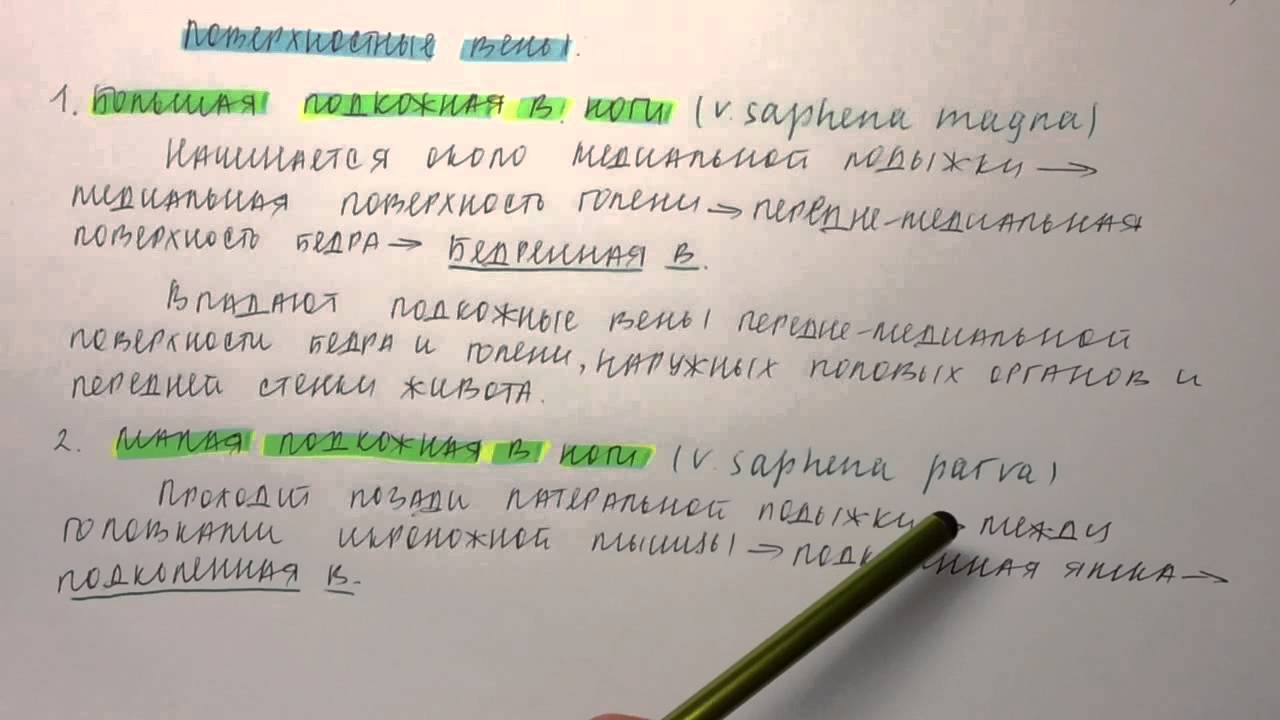 поверхностные вены.
1. Большая подкожная в. ноги (v. saphena magna)
Начинается около медиальной лодыжки →
медиальная поверхность голени → передне-медиальная
поверхность бедра → Бедренная в.
Впадают подкожные вены передне-медиальной
поверхности бедра и голени, наружных половых органов и
передней стенки живота.
2. Малая подкожная в. ноги (v. saphena parva)
Проходит позади латеральной лодыжки → между
головками икроножной мышцы → ямка →
подколенная в.